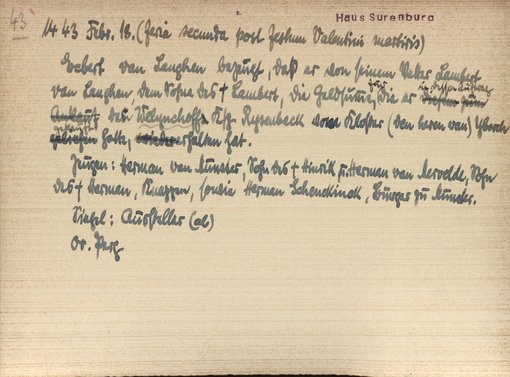 43
Haus Surenburg
1443 Febr. 18. (feria secunda post festum Valentini martiris)
Evert van Langhen bezeugt, daß er von seinem Vetter Lambert
van Langhen, dem Sohne des † Lambert, die Geldsumme, für die er in dessen Auftrag
Ankauf des Ksp. Rysenbeck vom Kloster (den heren van) Yborch
gekauft hatte, erhalten hat.
Zeugen: Herman van Munster, Sohn des † Hinrik u. Herman van Mervelde, Sohn
des † Herman, Knappen, sowie Herman Schenckinck, Bürger zu Münster.
Siegel: Aussteller (ab)
Or. Perg.